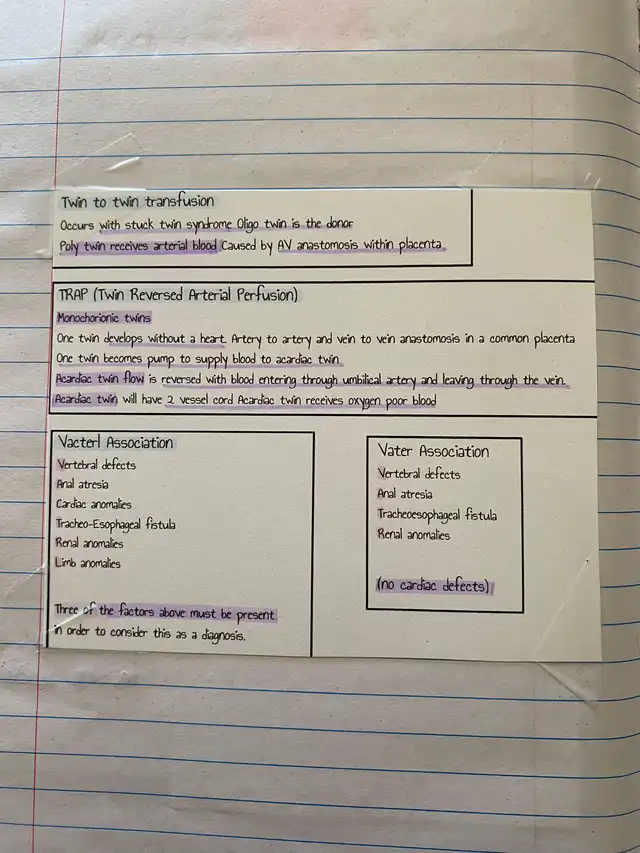 Twin to twin transfusion
Occurs with stuck twin syndrome Oligo twin is the donor
Poly twin receives arterial blood Caused by AV anastomosis within placenta.
TRAP (Twin Reversed Arterial Perfusion)
Monochorionic twins
One twin develops without a heart. Artery to artery and vein to vein anastomosis in a common placenta
One twin becomes pump to supply blood to acardiac twin.
Acardiac twin flow is reversed with blood entering through umbilical artery and leaving through the vein.
Acardiac twin will have 2 vessel cord Acardiac twin receives oxygen poor blood
Vacterl Association
Vertebral defects
Anal atresia
Cardiac anomalies
Tracheo-Esophageal fistula
Renal anomalies
Limb anomalies
Three of the factors above must be present
in order to consider this as a diagnosis.
Vater Association
Vertebral defects
Anal atresia
Tracheoesophageal fistula
Renal anomalies
(no cardiac defects)